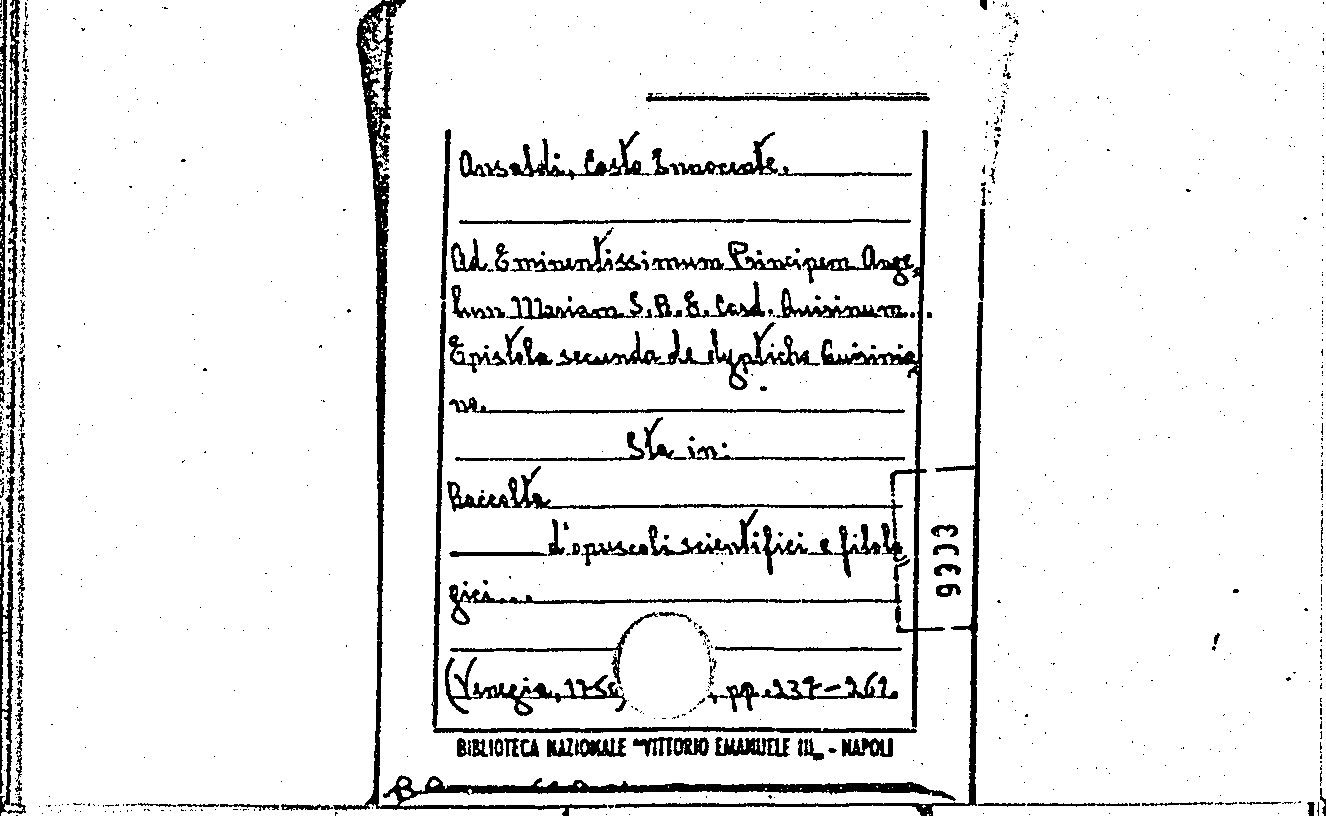 Ansaldi, Casto Innocente.
Ad Eminentissimum Principem Ange=
lum Mariam S.R.E. Card. Quirinum....
Epistola secunda de dypticho Quirinia=
no.
Sta in:
Raccolta
d'opuscoli scientifici e filolo=
gici....
(Venezia, pp. 237-261.
BIBLIOTECA NAZIONALE "VITTORIO EMANUELE III„ - NAPOLI
9333